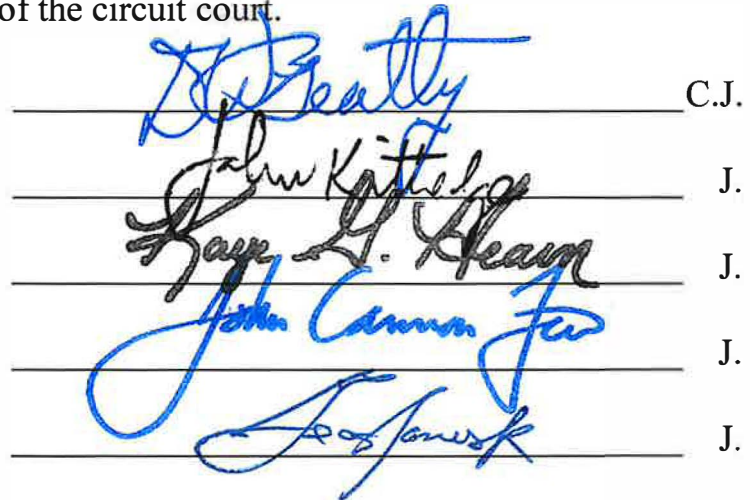 of the circuit court.
D W Beatty C.J.
John Kittredge J.
Kaye G. Hearn J.
John Cannon Few J.
J.